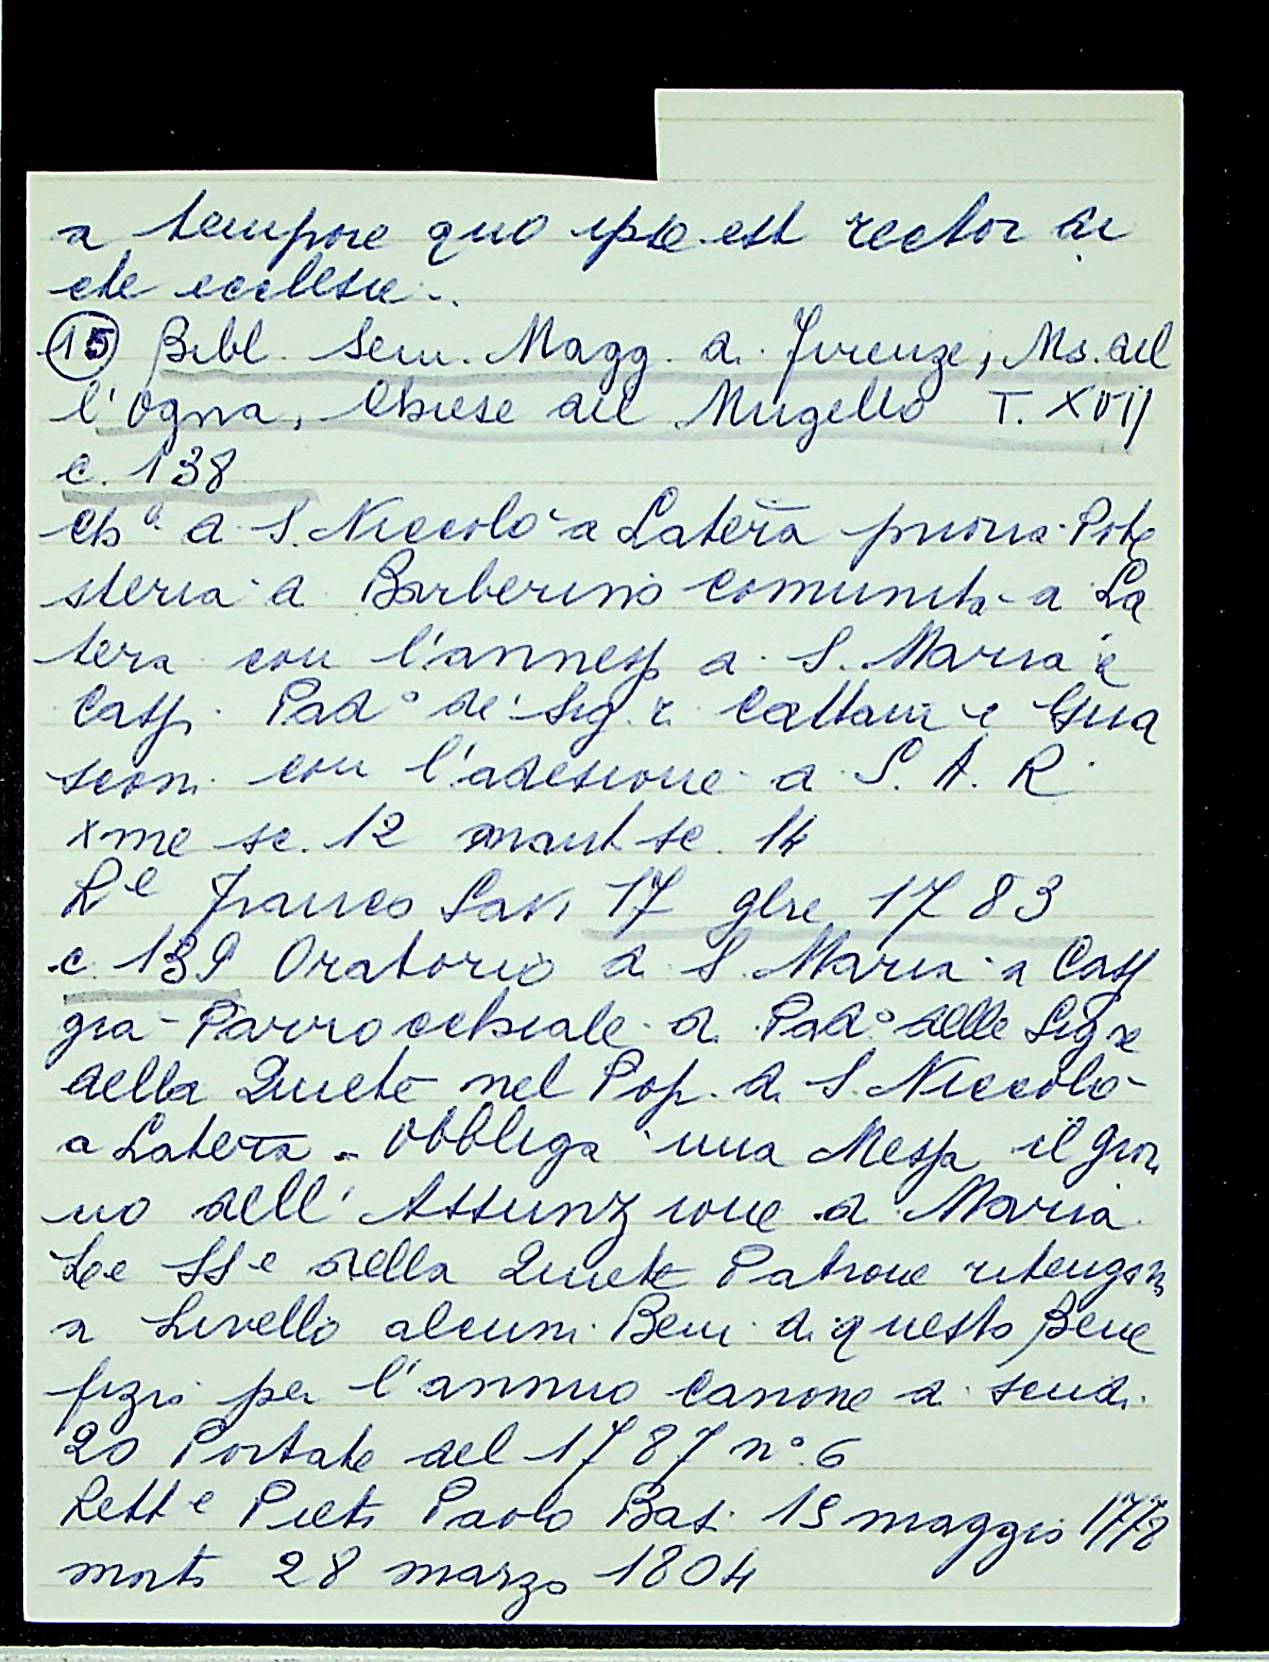 a tempore quo ipse est rector di
cte ecclesie..
(15) Bibl. Sem. Magg. di Firenze, Ms. del
l'Ogna, Chiese del Mugello T. XVII
c. 138
Ch.a di S. Niccolò a Latera prioria Pote
steria di Barberino comunità di La
tera con l'annesso di S. Maria a
Casp. Pad.o de' Sig.ri Cattani e Gua
sconi con l'adesione di S. A. R.
xme sc. 12 mant sc. 14
R.e Franco Savi 17 gbre 1783
c. 139 Oratorio di S. Maria a Casp
gia Parrocchiale di Pad.o delle Sig.re
della Quiete nel Pop. di S. Niccolò
a Latera - Obbliga una Messa il gior
no dell'Assunzione di Maria
Le SS.e della Quiete Patrone ritengon
a Livello alcuni Beni di questo Bene
fizio per l'annuo canone di scudi
20 Portate del 1787 n.o 6
Rett.e Pietro Paolo Bas. 19 maggio 1778
morto 28 marzo 1804